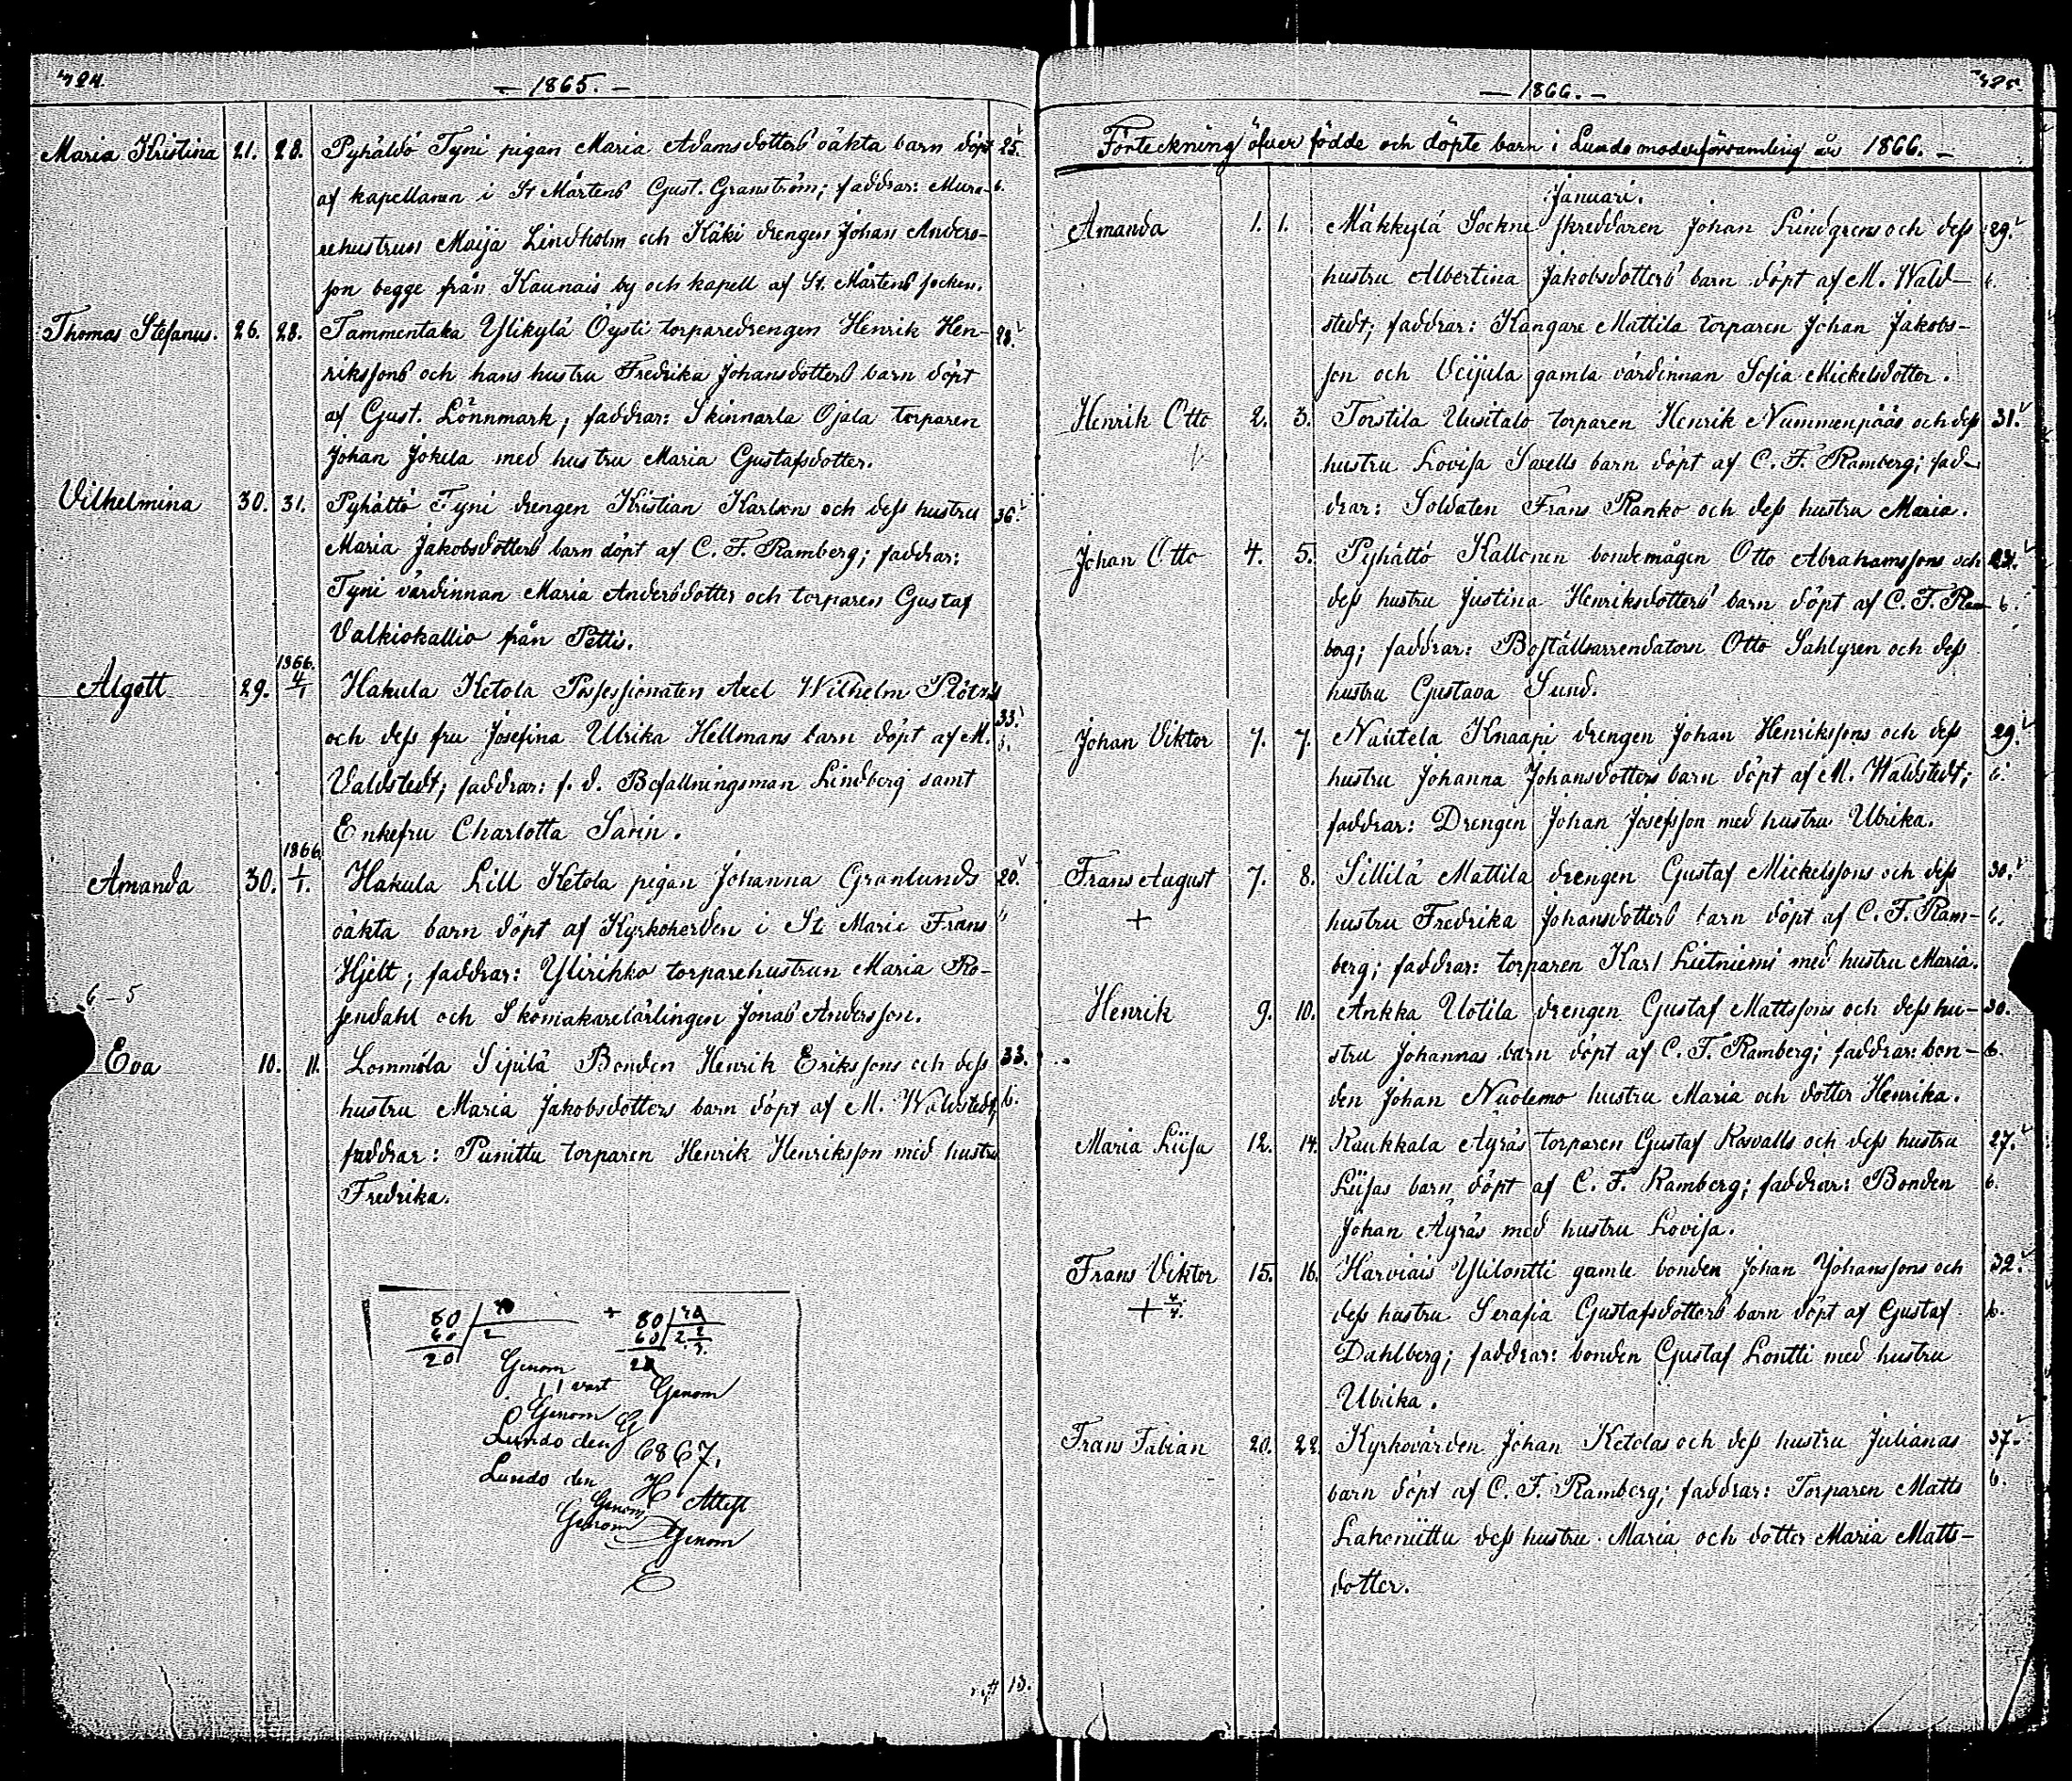 724.
— 1865. —
Maria Kristina 21. 28. Pyhältö Tyni pigan Maria Adamsdotters oäkta barn döpt 25.
af kapellanen i St Mårtens Gust. Granström; faddrar: Mura- 6.
rehustrun Maija Lindholm och Käki drengen Johan Anders-
son begge från Kaunais by och kapell af St. Mårtens socken.
Thomas Stefanus. 26. 28. Tammentaka Ylikylä Öysti torparedrengen Henrik Hen- 28.
rikssons och hans hustru Fredrika Johansdotters barn döpt
af Gust. Lönnmark; faddrar: Skinnarla Ojala torparen
Johan Jokela med hustru Maria Gustafsdotter.
Vilhelmina 30. 31. Pyhältö Tyni drengen Kristian Karlsons och dess hustru 36.
Maria Jakobsdotters barn döpt af C. F. Ramberg; faddrar:
Tyni värdinnan Maria Andersdotter och torparen Gustaf
Valkiokallio från Pettis.
1866.
Algott 29. 4/1 Hakula Ketola Possessionaten Axel Wilhelm
och dess fru Josefina Ulrika Hellmans barn döpt af M. 33. 6.
Valdstedt; faddrar: f. d. Befallningsman Lindberg samt
Enkefru Charlotta Sarin.
1866.
Amanda 30. 1/1. Hakula Lill Ketola pigan Johanna Granlunds 20.
oäkta barn döpt af Kyrkoherden i St Marie Frans 6
Hjelt; faddrar: Ylirihko torparehustrun Maria Ro-
6–5 sendahl och Skomakarelärlingen Jonas Andersson.
Eva 10. 11. Lommola Sipilä Bonden Henrik Erikssons och dess 33.
hustru Maria Jakobsdotters barn döpt af M. Waldstedt, 6.
faddrar: Punittu torparen Henrik Henriksson med hustru
Fredrika.
80
60 2
20
+ 80
60 2
Genom
vart Genom
Genom G
Lundo den 6867.
Lundo den H
Genom Attest
Genom Genom
E
13.
725
— 1866. —
Förteckning öfver födde och döpte barn i Lundo moderförsamling år 1866. —
Januari.
Amanda 1. 1. Mäkkylä Sockne skreddaren Johan Lindgrens och dess 29.
hustru Albertina Jakobsdotters barn döpt af M. Wald- 6.
stedt; faddrar: Kangare Mattila torparen Johan Jakobs-
son och Veijula gamla värdinnan Sofia Mickelsdotter.
Henrik Otto 2. 3. Torstila Uusitalo torparen Henrik Nummenpääs och dess 31.
hustru Lovisa Saxells barn döpt af C. F. Ramberg; fad-
drar: Soldaten Frans Ranko och dess hustru Maria.
Johan Otto 4. 5. Pyhältö Kallonen bondemågen Otto Abrahamssons och 24.
dess hustru Justina Henriksdotters barn döpt af C. F. Ram- 6.
berg; faddrar: Boställsarrendatorn Otto Sahlgren och dess
hustru Gustava Sund.
Johan Viktor 7. 7. Nautela Knaapi drengen Johan Henrikssons och dess 29.
hustru Johanna Johansdotters barn döpt af M. Waldstedt; 6.
faddrar: Drengen Johan Josefsson med hustru Ulrika.
Frans August 7. 8. Sillilä Mattila drengen Gustaf Mickelssons och dess 30.
+ hustru Fredrika Johansdotters barn döpt af C. F. Ram- 6.
berg; faddrar: torparen Karl Lietniemi med hustru Maria.
Henrik 9. 10. Ankka Uotila drengen Gustaf Mattssons och dess hu- 30.
stru Johannas barn döpt af C. F. Ramberg; faddrar: bon- 6.
den Johan Nuolemo hustru Maria och dotter Henrika.
Maria Liisa 12. 14. Kaukkala Äyräs torparen Gustaf Rosvalls och dess hustru 27.
Liisas barn döpt af C. F. Ramberg; faddrar: Bonden 6.
Johan Äyräs med hustru Lovisa.
Frans Viktor 15. 16. Harviais Ylilontti gamle bonden Johan Johanssons och 32.
+ 4/4. dess hustru Serafia Gustafsdotters barn döpt af Gustaf 6.
Dahlberg; faddrar: bonden Gustaf Lontti med hustru
Ulrika.
Frans Fabian 20. 22. Kyrkovärden Johan Ketolas och dess hustru Julianas 37.
barn döpt af C. F. Ramberg; faddrar: Torparen Matts 6.
Lahoniittu dess hustru Maria och dotter Maria Matts-
dotter.